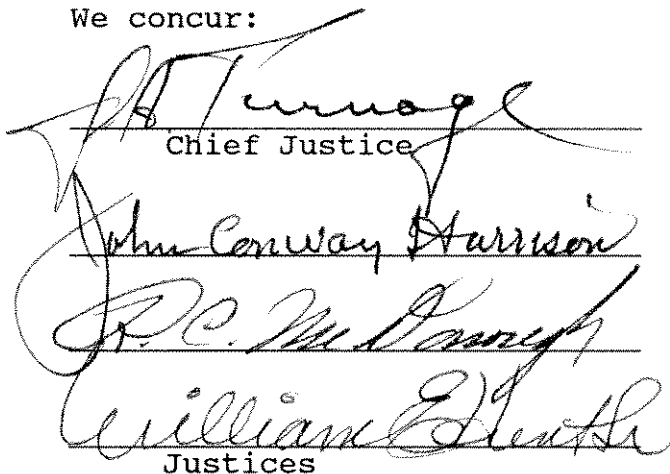 We concur:
J. A. Turnage
Chief Justice
John Conway Harrison
R. C. McDonough
William E. Hunt Sr
Justices